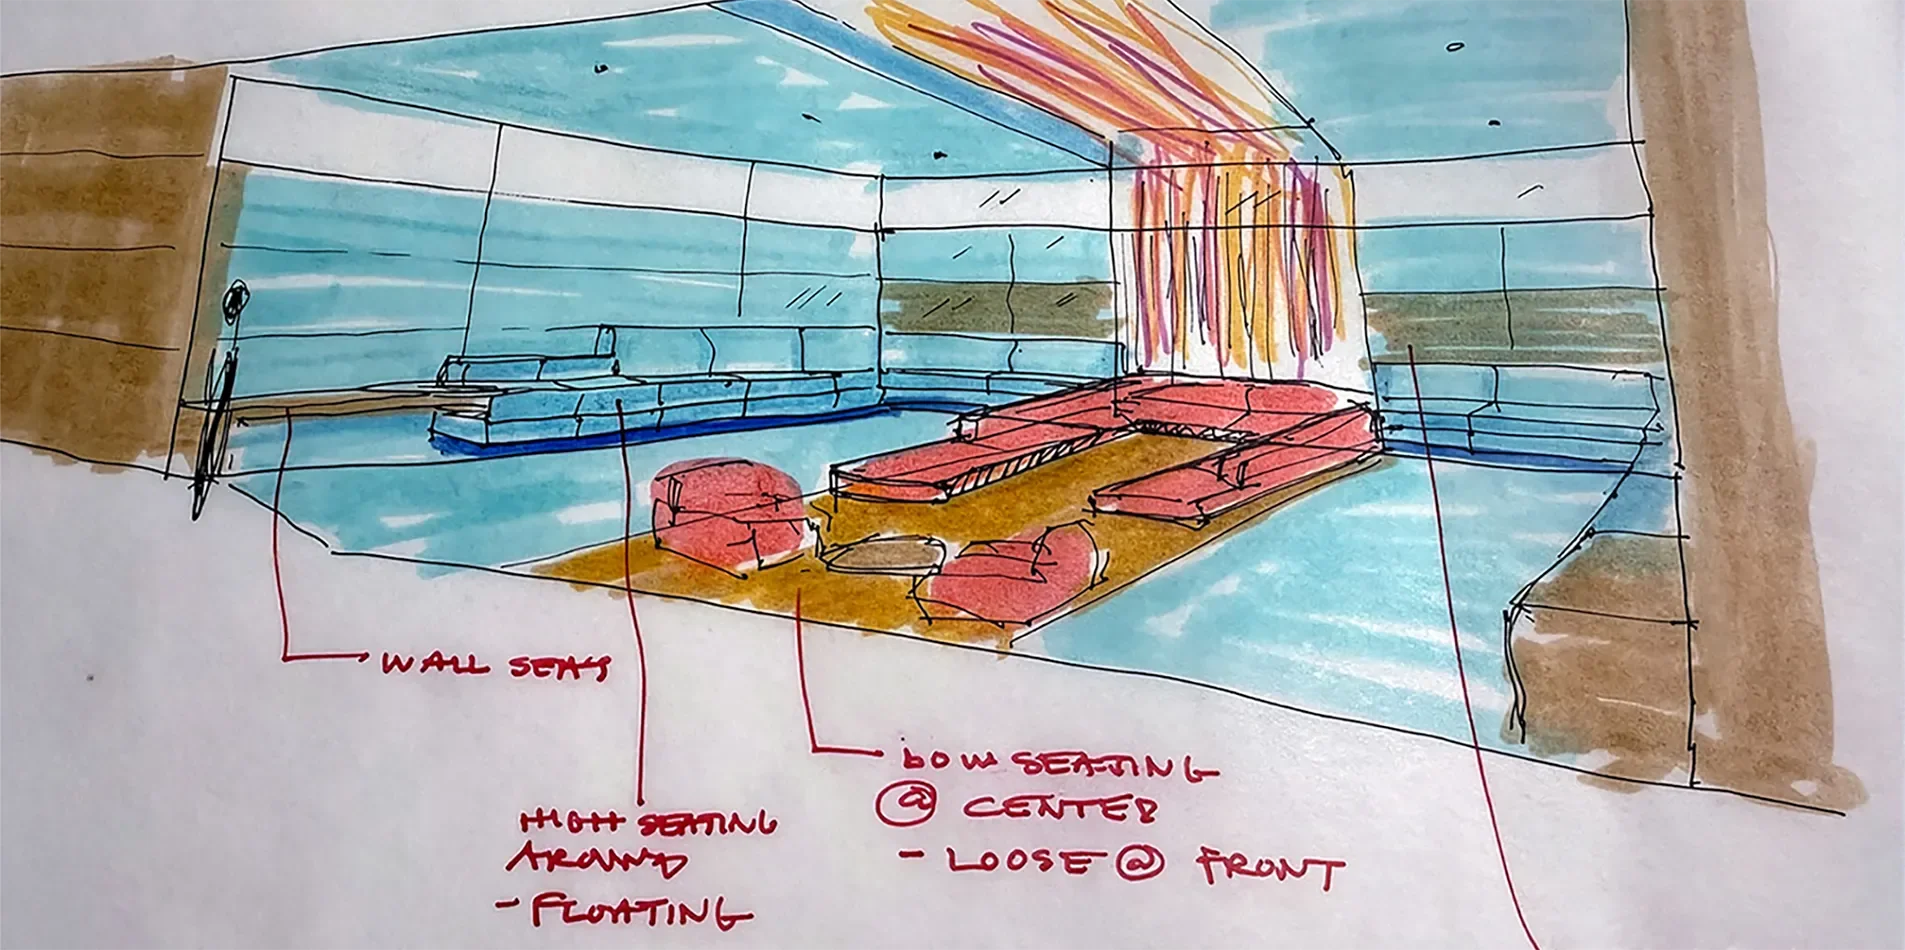 WALL SEATS
HIGH SEATING
AROUND
- FLOATING
LOW SEATING
@ CENTER
- LOOSE @ FRONT